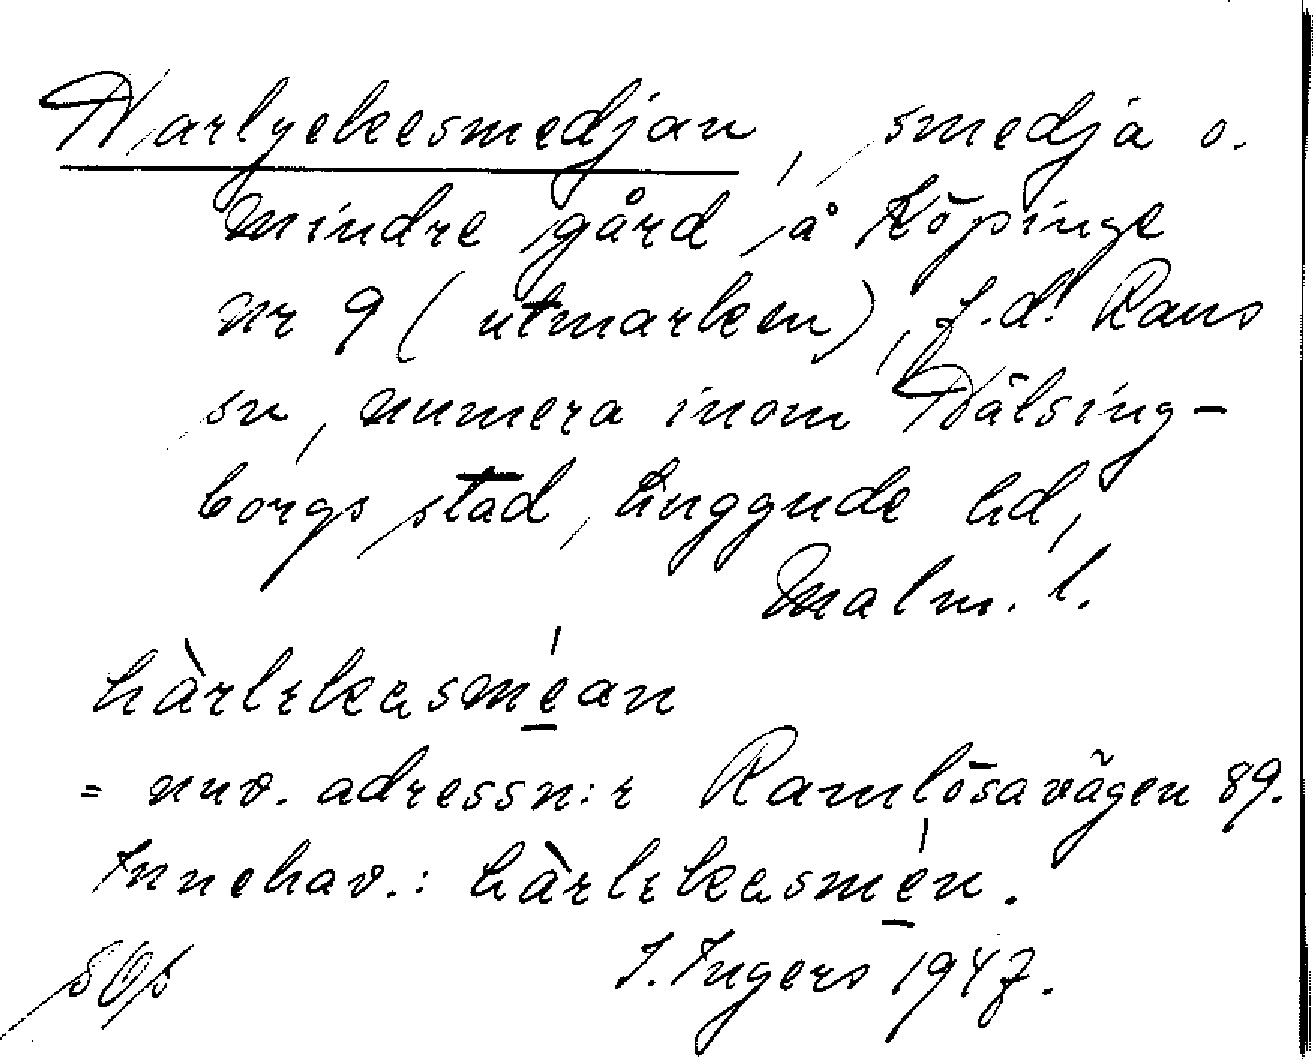 Harlyckesmedjan, smedja o.
mindre gård å Köpinge
nr 9 (utmarken), f.d. Raus
sn, numera inom Hälsing-
borgs stad, Luggude hd,
Malm. l.
hàrlɛkasméan
= nuv. adressn:r Ramlösavägen 89.
Innehav.: hàrlɛkasmén.
I. Ingers 1947.